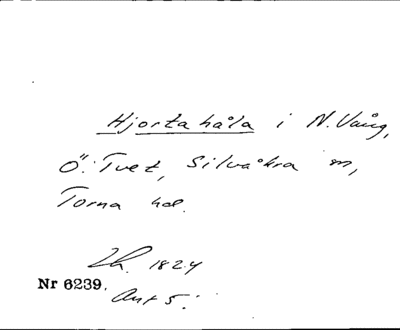 Hjortahåla i N. Vång,
Ö. Tvet, Silvåkra m,
Torna hd.
1824
Nr 6239.
Ant 5: